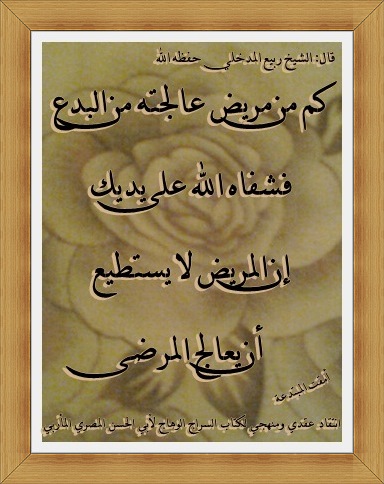 قال: الشيخ ربيع المدخلي حفظه الله
كم من مريض عالجته من البدع
فشفاه الله على يديك
إن المريض لا يستطيع
أن يعالج المرضى
أمقت المبتدعة
إنتقاد عقدي ومنهجي لكتاب السراج الوهاج لأبي الحسن المصري المأربي